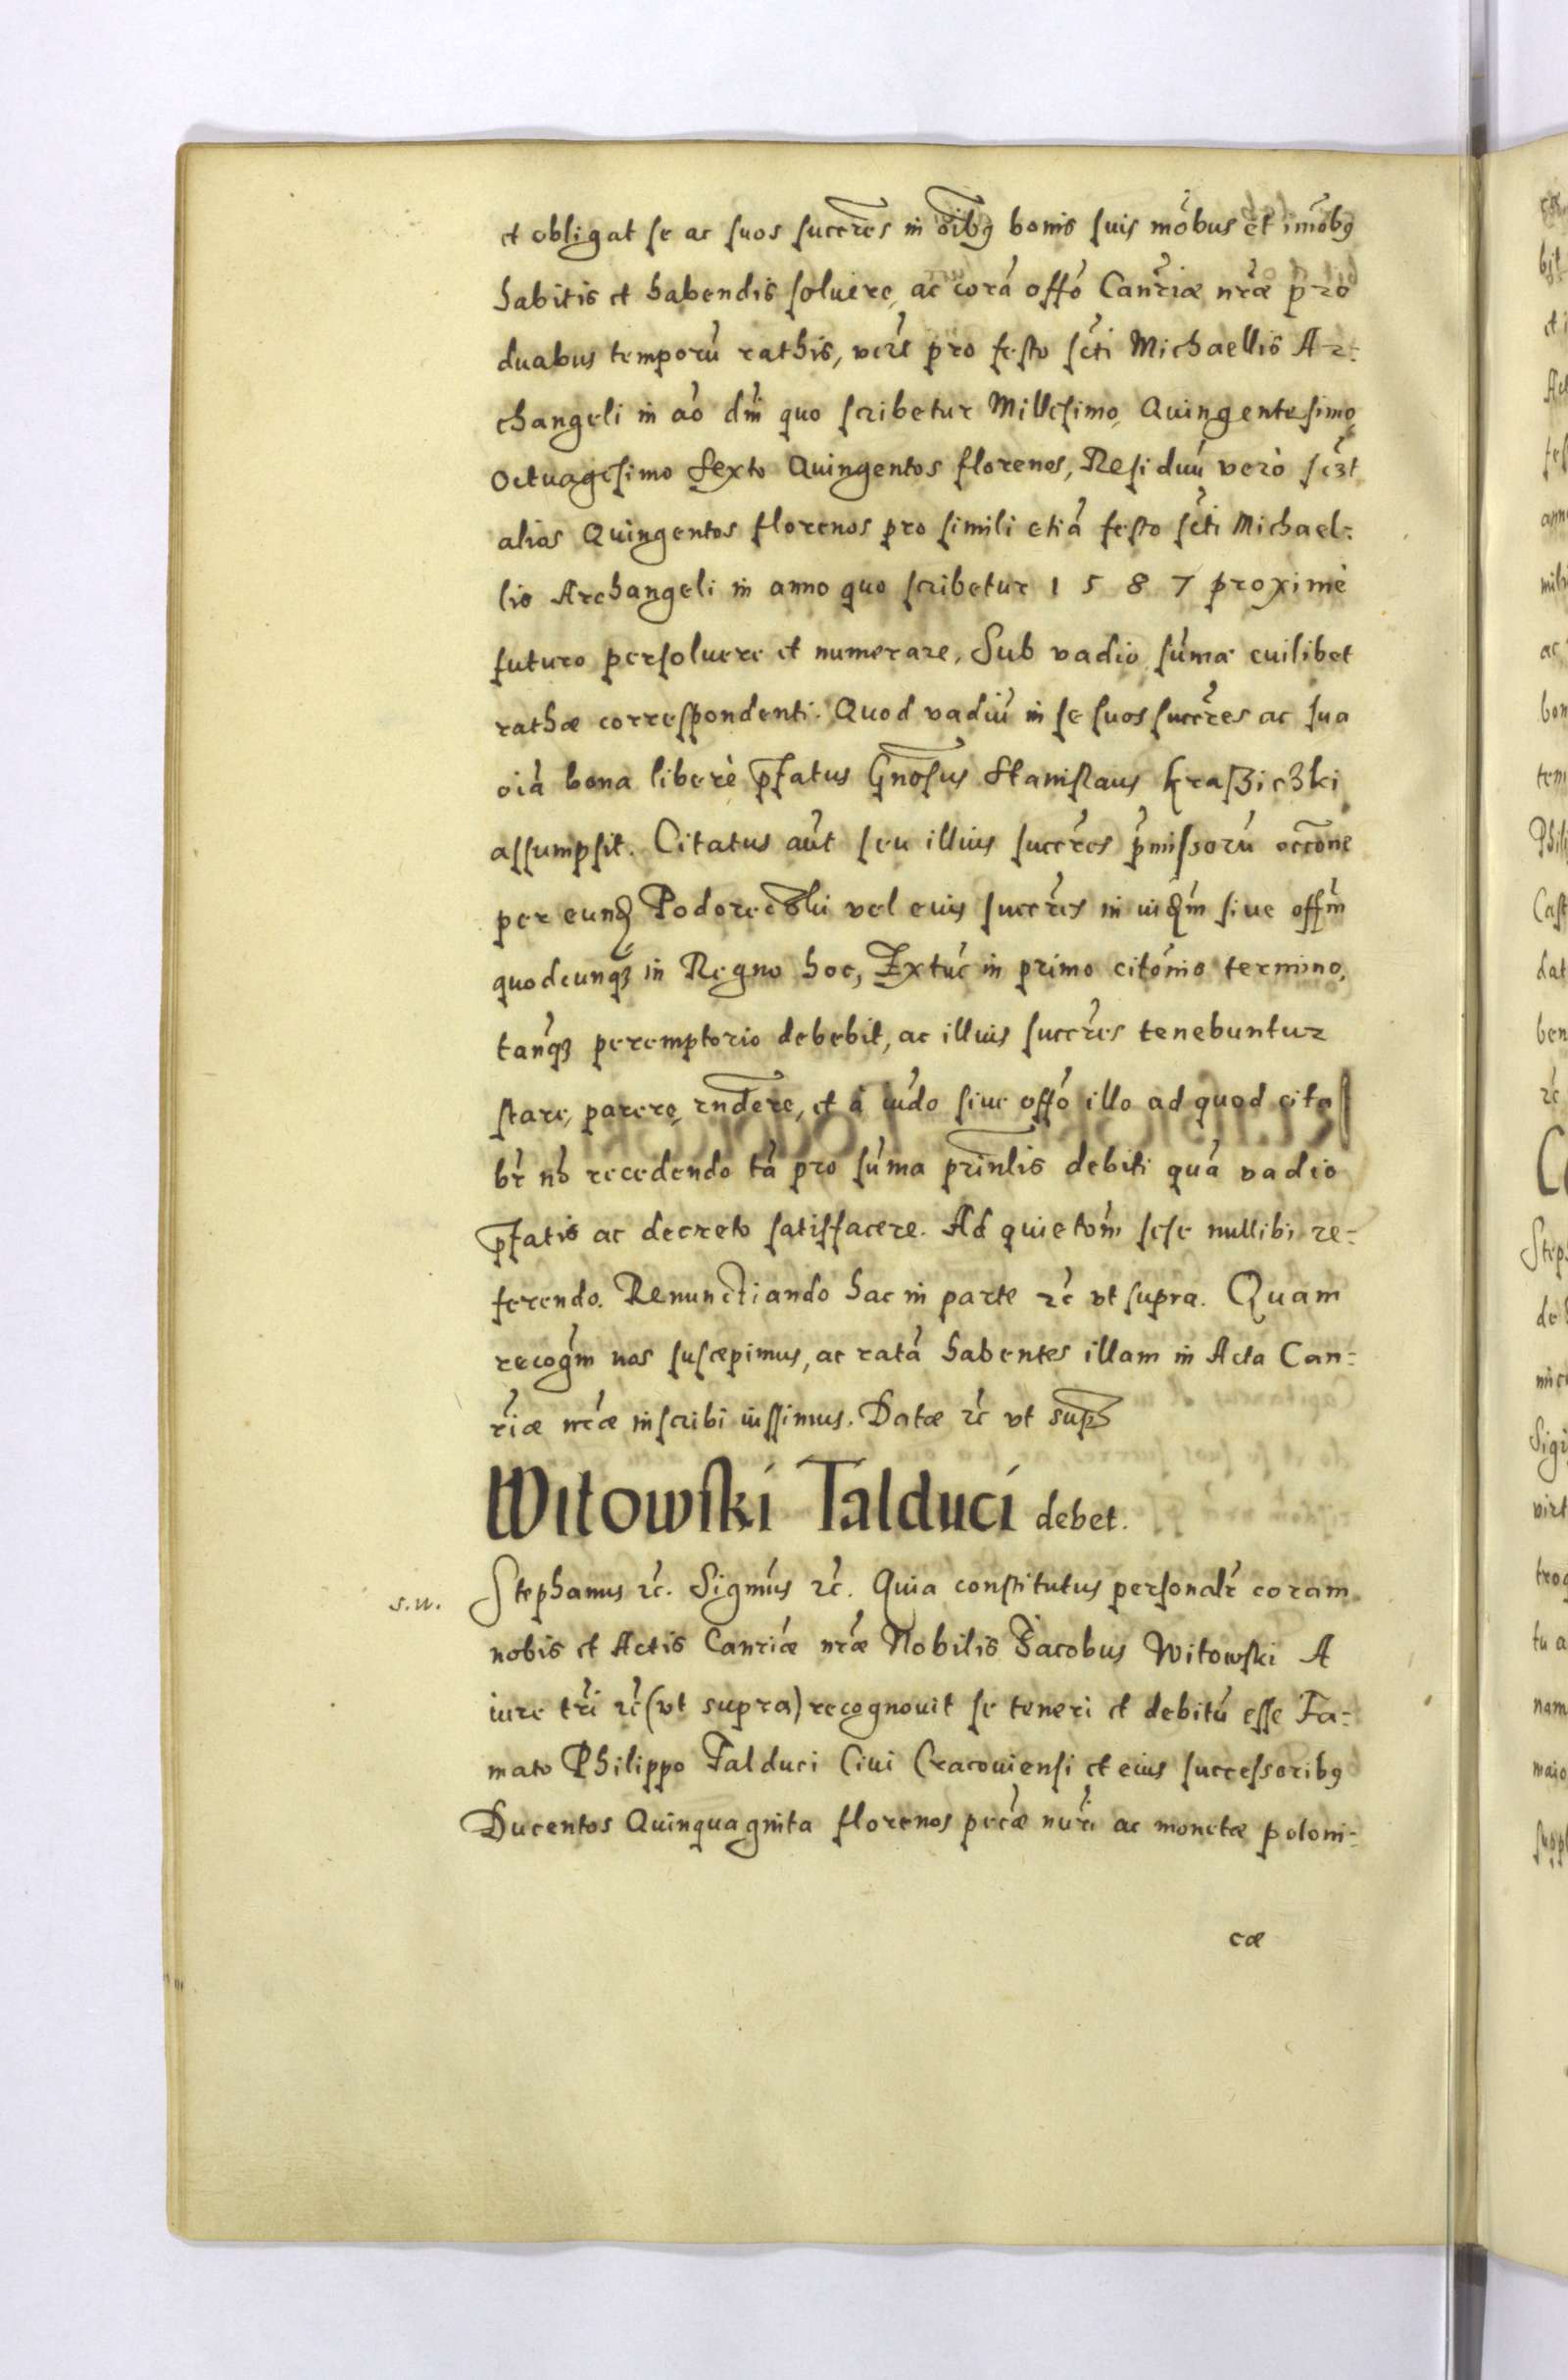 et obligat se ac suos succe͂res in oı͂bꝯ bonis suis mo͂bus et imo͂bꝯ
habitis et habendis soluere, ac corã offo͂ Canr͂iæ nr͂æ pro
duabus temporũ rathis, ver͂s pro festo sc͂ti Michaellis Ar=
changeli in ao͂ dn͂i quo scribetur Millesimo, Quingentesimo,
Octuagesimo Sexto Quingentos florenos, Residuũ verò scꝫt
alios Quingentos florenos pro simili etiã festo sc͂ti Michael=
lis Archangeli in anno quo scribetur 1 5 8 7 proximè
futuro persoluere et numerare, Sub vadio sum͂æ cuilibet
rathæ correspondenti. Quod vadiũ in se suos succr͂es ac sua
oı͂a bona liberè p͂fatus Gn͂osus Stanislaus Krasziczki
assumpsit. Citatus aut͂ seu illius succr͂es p͂missorũ occo͂ne
per eund Podoreczki vel eius succr͂es in iud͂m siue off͂m
quodcunqꝫ in Regno hoc, Extũc in primo cito͂nis termino,
tanqꝫ peremptorio debebit, ac illius succr͂es tenebuntur
stare, parere, rn͂dere, et à iud͂o siue offo͂ illo ad quod cita
br͂ no͂ recedendo tã pro sum͂a prin͂lis debiti quã vadio
p͂fatis ac decreto satisfacere. Ad quieto͂m sese nullibi re=
ferendo. Renunctiando hac in parte ꝛc͂ vt supra. Quam
recog͂m nos suscepimus, ac ratã habentes illam in Acta Can=
r͂iæ nr͂æ inscribi iussimus. Datæ ꝛc͂ vt sup͂
Witowski Talduci debet.
s.n. Stephanus ꝛc͂. Sigm͂us ꝛc͂. Quia constitutus personalr͂ coram
nobis et Actis Canr͂iæ nr͂æ Nobilis Jacobus Witowski A
iure tr͂i ꝛc͂ (vt supra) recognouit se teneri et debitũ esse Fa=
mato Philippo Talduci Ciui Cracouiensi et eius successoribꝯ
Ducentos Quinquaginta florenos pec͂æ nur͂i ac monetæ poloni=
cæ